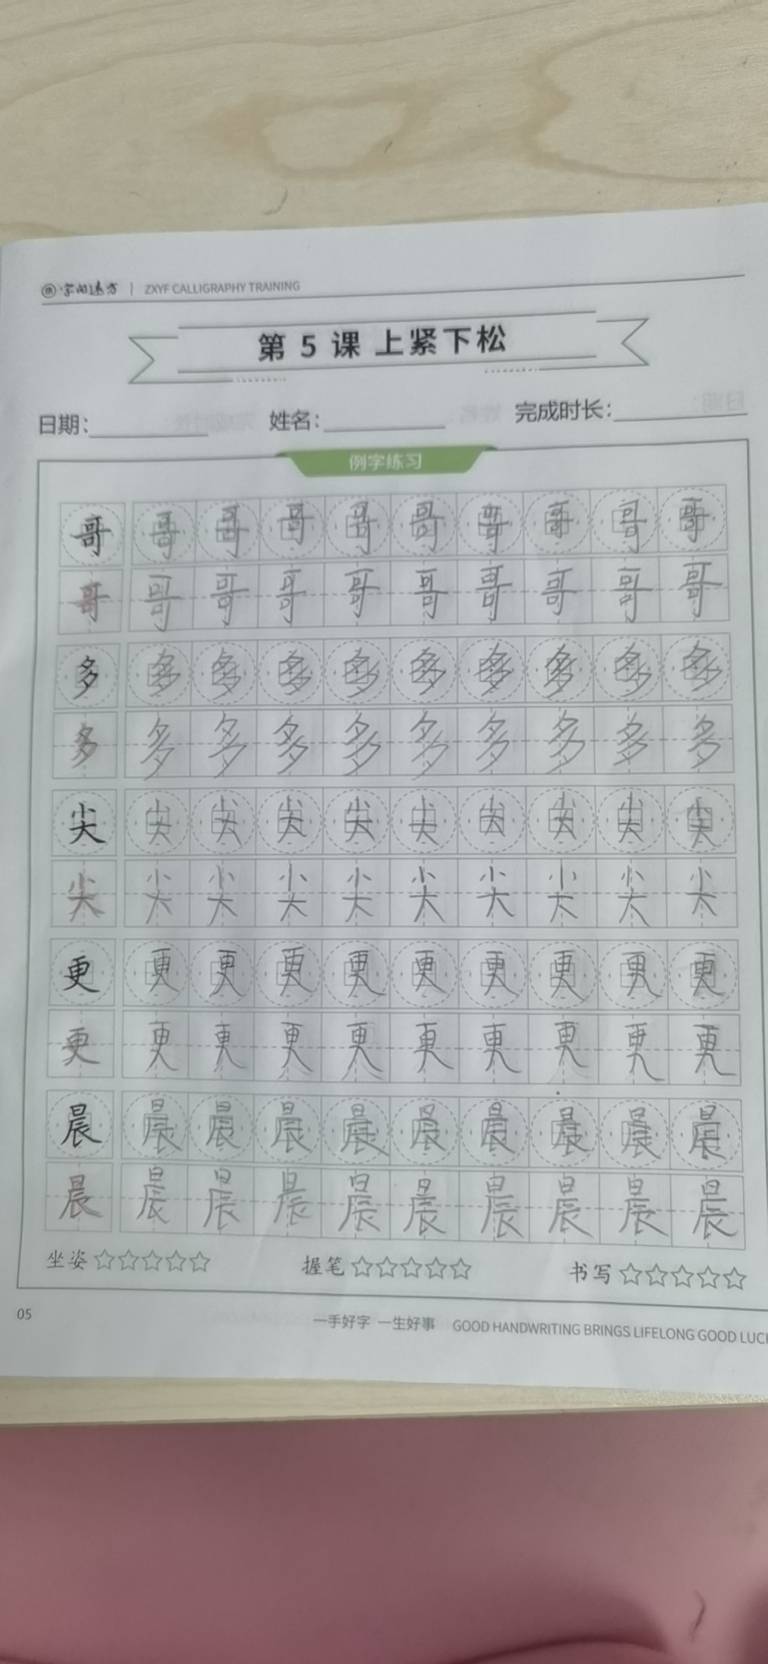 字向远方 | ZXYF CALLIGRAPHY TRAINING
第 5 课 上紧下松
日期: 姓名: 完成时长:
例字练习
哥 哥 哥 哥 哥 哥 哥 哥 哥 哥
哥 哥 哥 哥 哥 哥 哥 哥 哥 哥
多 多 多 多 多 多 多 多 多 多
多 多 多 多 多 多 多 多 多 多
尖 尖 尖 尖 尖 尖 尖 尖 尖 尖
尖 尖 尖 尖 尖 尖 尖 尖 尖 尖
更 更 更 更 更 更 更 更 更 更
更 更 更 更 更 更 更 更 更 更
晨 晨 晨 晨 晨 晨 晨 晨 晨 晨
晨 晨 晨 晨 晨 晨 晨 晨 晨 晨
坐姿☆☆☆☆☆ 握笔☆☆☆☆☆ 书写☆☆☆☆☆
05 一手好字 一生好事 GOOD HANDWRITING BRINGS LIFELONG GOOD LUC